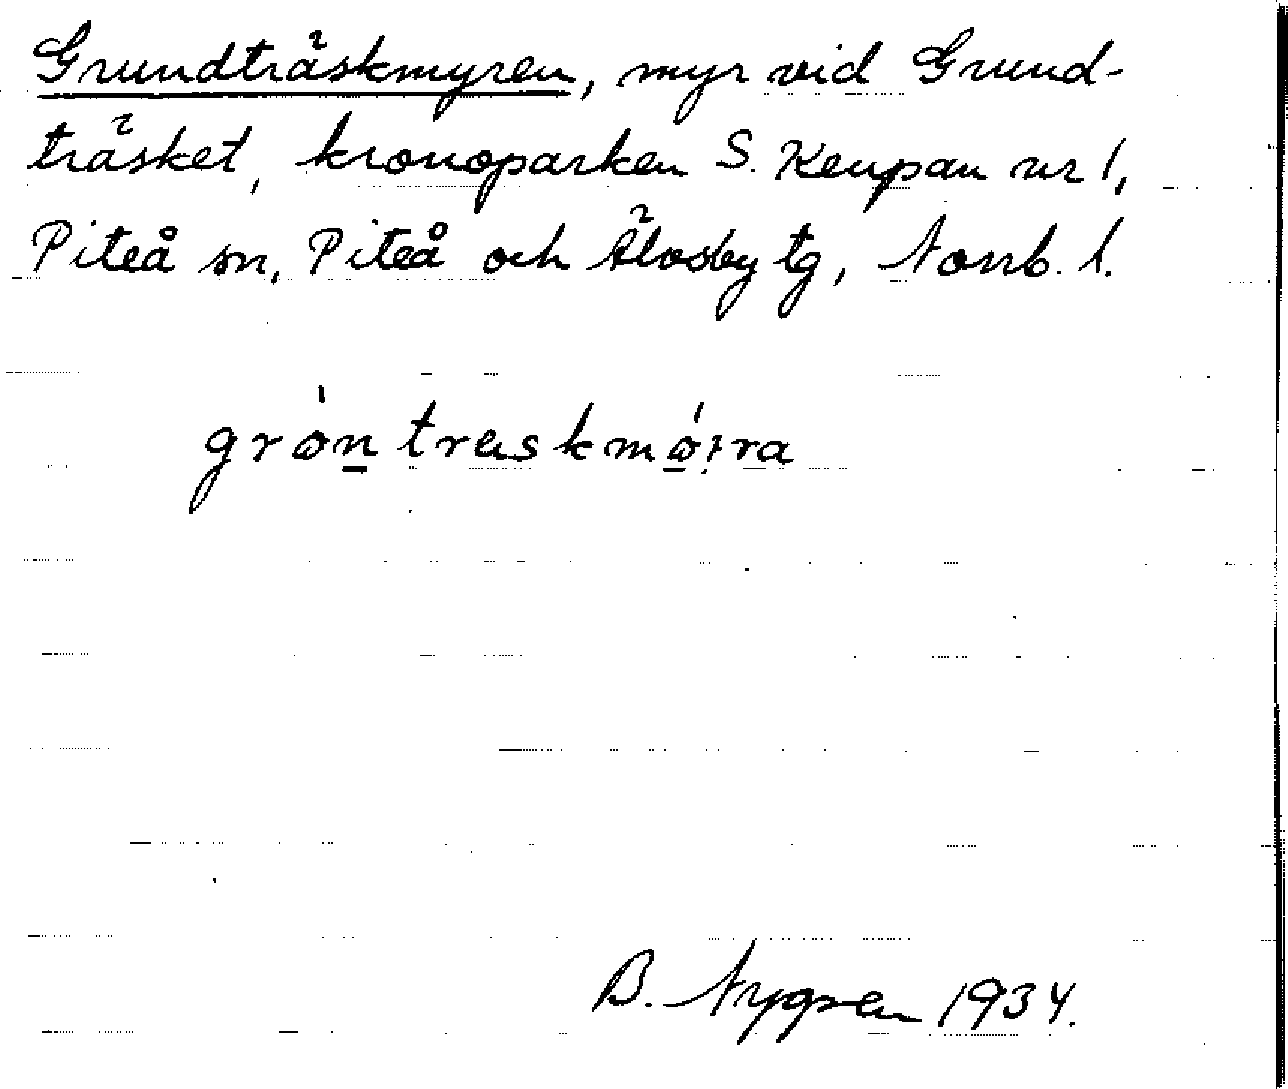 Grundträskmyren, myr vid Grund-
träsket, kronoparken S. Keupan nr 1,
Piteå sn, Piteå och Älvsby tg, Norrb. l.
gròn treskmó:ra
B. Nygren 1934.